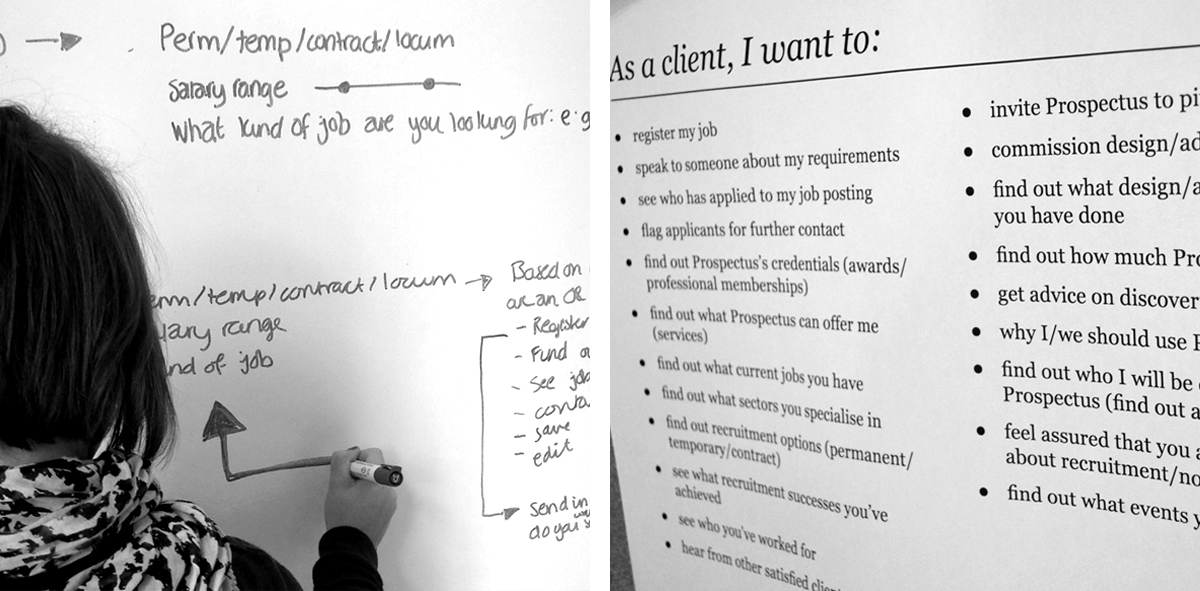 Perm/temp/contract/locum
Salary range
What kind of job are you looking for: e.g
/temp/contract/locum
range
of job
Based on
- Register
- Fund
- See job
-
- save
- edit
Send in
do you
As a client, I want to:
• register my job
• speak to someone about my requirements
• see who has applied to my job posting
• flag applicants for further contact
• find out Prospectus's credentials (awards/
professional memberships)
• find out what Prospectus can offer me
(services)
• find out what current jobs you have
• find out what sectors you specialise in
• find out recruitment options (permanent/
temporary/contract)
• see what recruitment successes you've
achieved
• see who you've worked for
• hear from other satisfied
• invite Prospectus to
• commission design/
• find out what design/
you have done
• find out how much
• get advice on
• why I/we should use
• find out who I will be
Prospectus (find out
• feel assured that you
about recruitment/
• find out what events